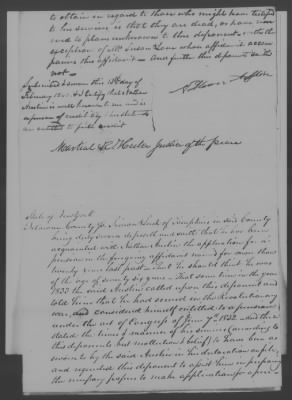 to obtain in regard to those who might have testified
to his services is that they are dead, or have
and to places unknown to this deponent with the
exception of Mr. whose affidavit is accom
panies this affidavit And further this deponent saith
not.
Subscribed & sworn this day of
February I Certify that Nathan
Austin is well known to me and is
a person of credibility & is
entitled to full credit
Nathan Austin
Marshal R. Hulce Justice of the Peace
State of New York
Delaware County ss. Simon Lusk of Tompkins in said County
being duly sworn deposeth and saith that he has been
acquainted with Nathan Austin the applicant for a
pension in the foregoing affidavit named for more than
twenty years last past That he states that he was
of the age of seventy six years That some time in the year
1833 the said Austin called upon this deponent and
told him that he had served in the Revolutionary
war, and considered himself entitled to a pension
under the act of Congress of June 7th, 1832 and then
stated the time & manner of his service (according to
this deponents best recollection & belief) to have been as
sworn to by the said Austin in his declaration on file,
and requested this deponent to assist him in preparing
the necessary papers to make application for a pen-